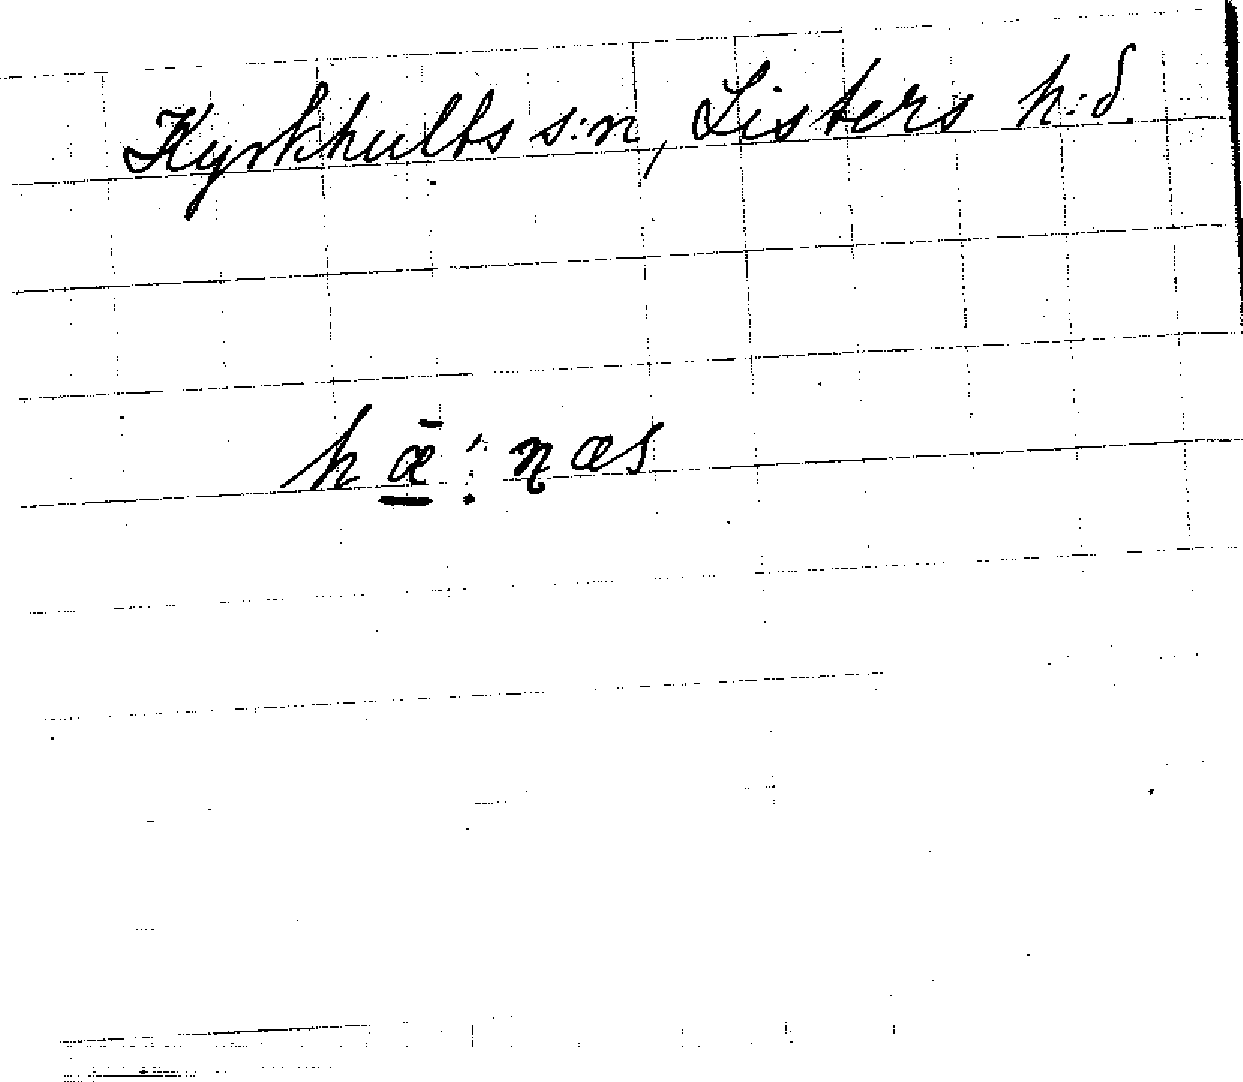 Kyrkhults s:n, Listers h:d.
hǣ̱:ṇæs